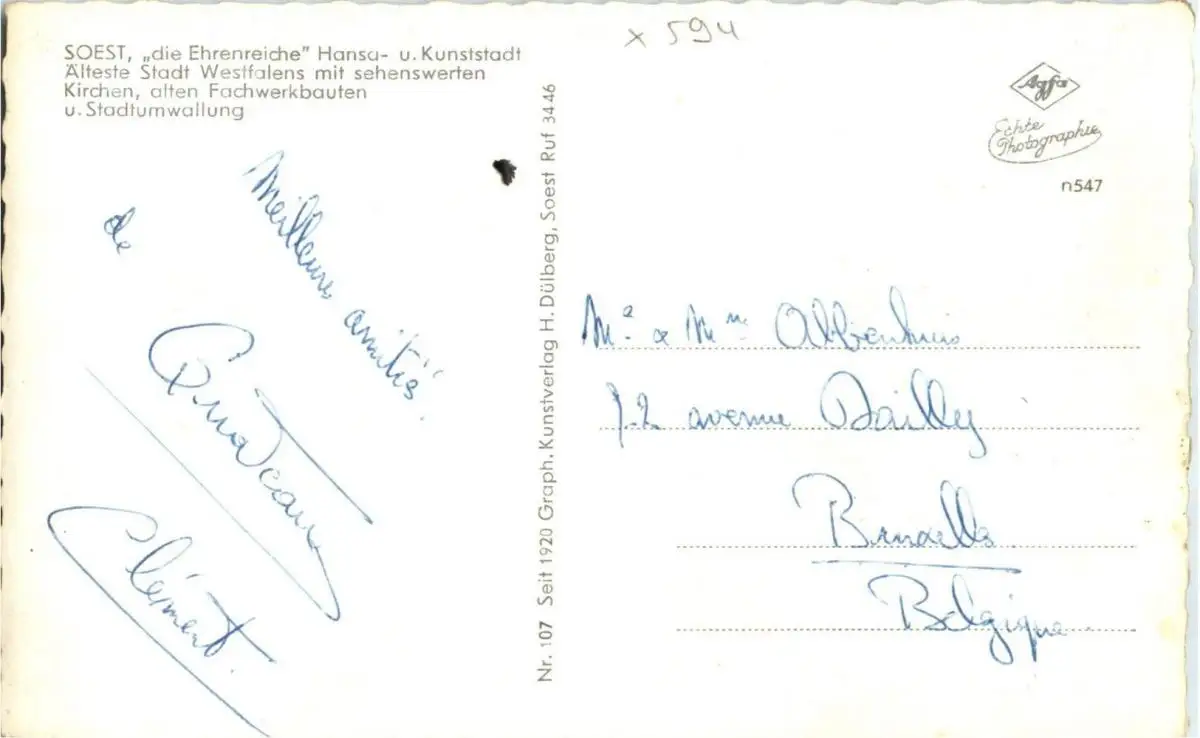 x 594
SOEST, „die Ehrenreiche" Hansa- u. Kunststadt
Älteste Stadt Westfalens mit sehenswerten
Kirchen, alten Fachwerkbauten
u. Stadtumwallung
Meilleures amitiés.
de
Clément.
Nr. 107 Seit 1920 Graph. Kunstverlag H. Dülberg, Soest Ruf 3446
Agfa
Echte
Photographie
n547
Mr & Mme
72 avenue Dailly
Bruxelles
Belgique